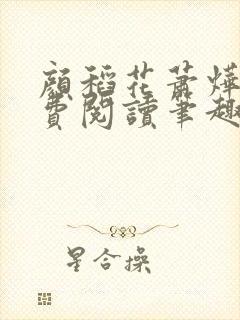 顏稻花蕭燁
費閱讀筆趣
星合操